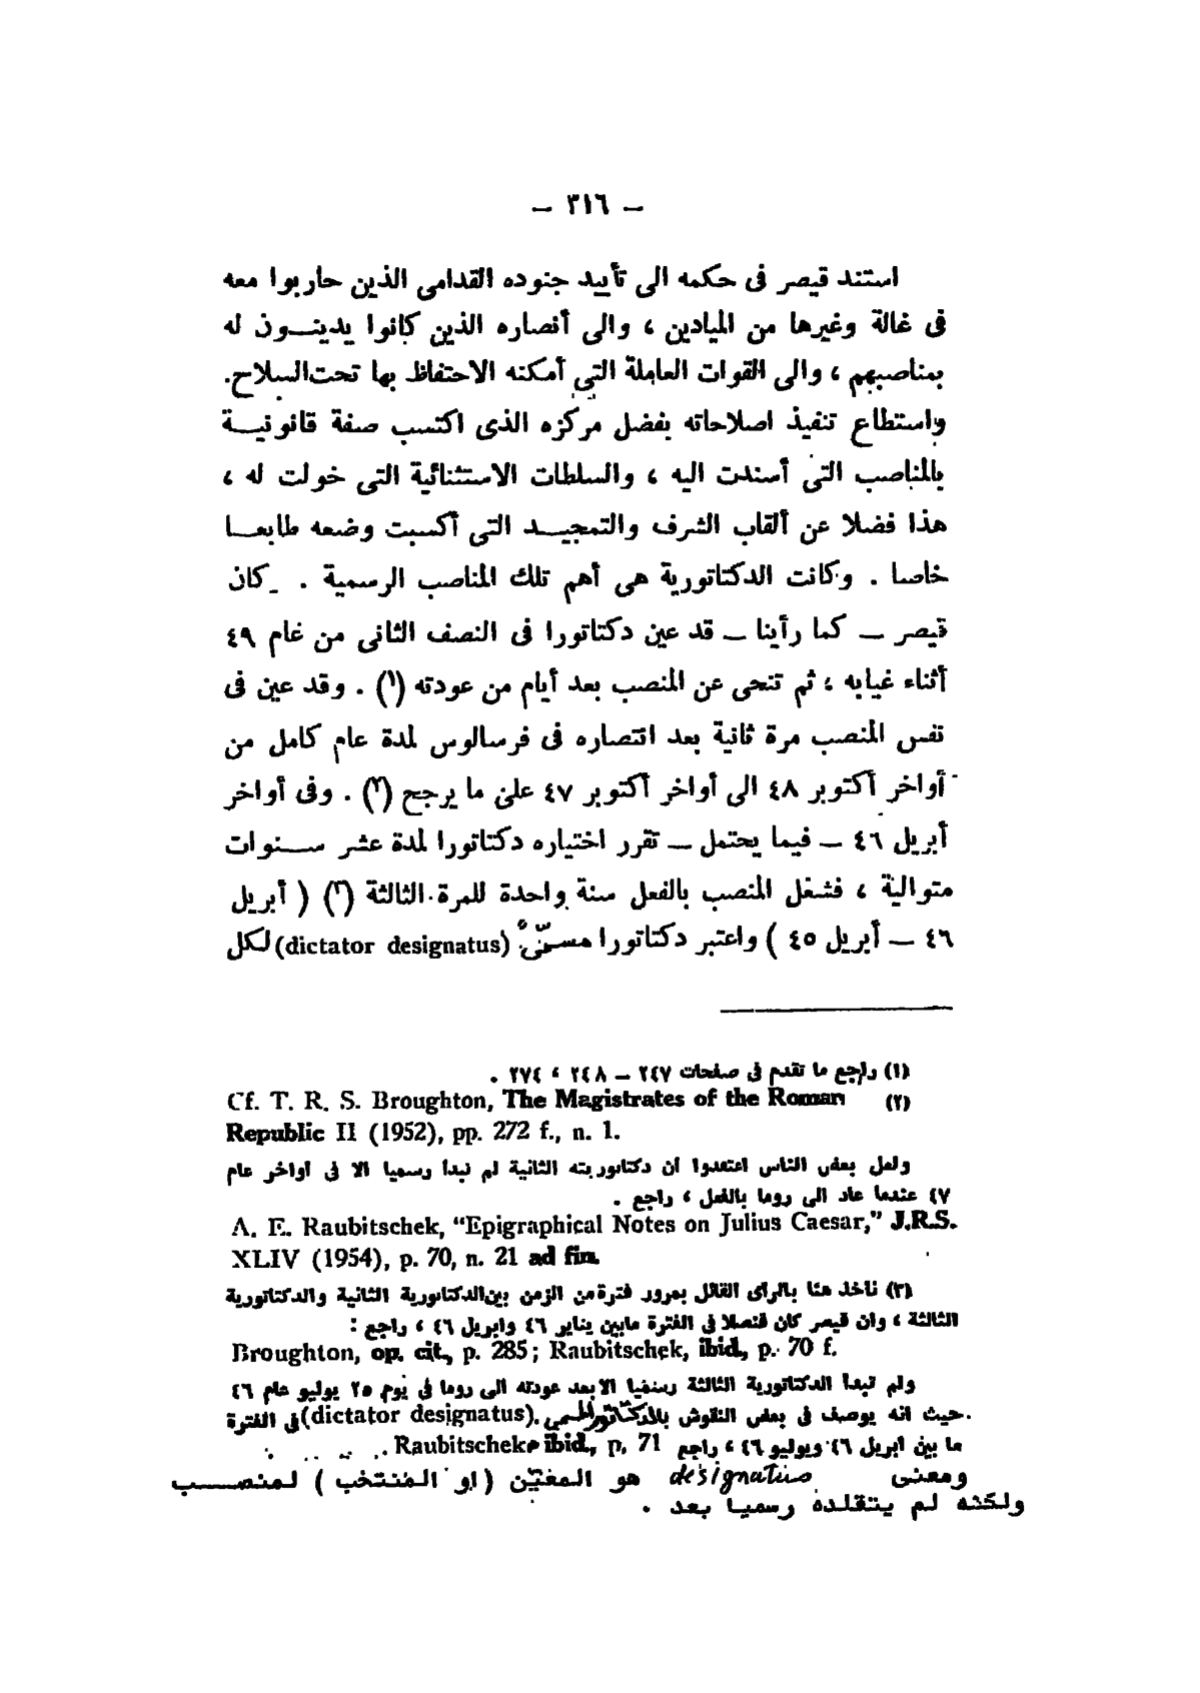 — ٣١٦ —
استند قيصر فى حكمه الى تأييد جنوده القدامى الذين حاربوا معه
فى غالة وغيرها من الميادين ، والى أنصاره الذين كانوا يدينــون له
بمناصبهم ، والى القوات العاملة التى أمكنه الاحتفاظ بها تحت السلاح.
واستطاع تنفيذ اصلاحاته بفضل مركزه الذى اكتسب صفة قانونيــة
بالمناصب التى أسندت اليه ، والسلطات الاستثنائية التى خولت له ،
هذا فضلا عن ألقاب الشرف والتمجيــد التى أكسبت وضعه طابعــا
خاصا . وكانت الدكتاتورية هى أهم تلك المناصب الرسمية . كان
قيصر — كما رأينا — قد عين دكتاتورا فى النصف الثانى من عام ٤٩
أثناء غيابه ، ثم تنحى عن المنصب بعد أيام من عودته (١) . وقد عين فى
نفس المنصب مرة ثانية بعد انتصاره فى فرسالوس لمدة عام كامل من
أواخر أكتوبر ٤٨ الى أواخر أكتوبر ٤٧ على ما يرجح (٢) . وفى أواخر
أبريل ٤٦ — فيما يحتمل — تقرر اختياره دكتاتورا لمدة عشر ســنوات
متوالية ، فشغل المنصب بالفعل سنة واحدة للمرة الثالثة (٣) ( أبريل
٤٦ — أبريل ٤٥ ) واعتبر دكتاتورا مسمّىً (dictator designatus) لكل
(١) راجع ما تقدم فى صفحات ٢٤٧ — ٢٤٨ ، ٢٧٤ .
(٢) Cf. T. R. S. Broughton, The Magistrates of the Roman
Republic II (1952), pp. 272 f., n. 1.
ولعل بعض الناس اعتقدوا أن دكتاتوريته الثانية لم تبدأ رسميا الا فى أواخر عام
٤٧ عندما عاد الى روما بالفعل ، راجع .
A. E. Raubitschek, “Epigraphical Notes on Julius Caesar,” J.R.S.
XLIV (1954), p. 70, n. 21 ad fin.
(٣) نأخذ هنا بالرأى القائل بمرور فترة من الزمن بين الدكتاتورية الثانية والدكتاتورية
الثالثة ، وان قيصر كان قنصلا فى الفترة مابين يناير ٤٦ وابريل ٤٦ ، راجع :
Broughton, op. cit., p. 285; Raubitschek, ibid., p. 70 f.
ولم تبدأ الدكتاتورية الثالثة رسميا الا بعد عودته الى روما فى يوم ٢٥ يوليو عام ٤٦
حيث انه يوصف فى بعض النقوش (dictator designatus) فى الفترة
ما بين ابريل ٤٦ ويوليو ٤٦ ، راجع Raubitschek, ibid., p. 71 .
ومعنى designatus هو المعيّن ( او المُنتخب ) لمنصــب
ولكنه لم يتقلده رسميا بعد .